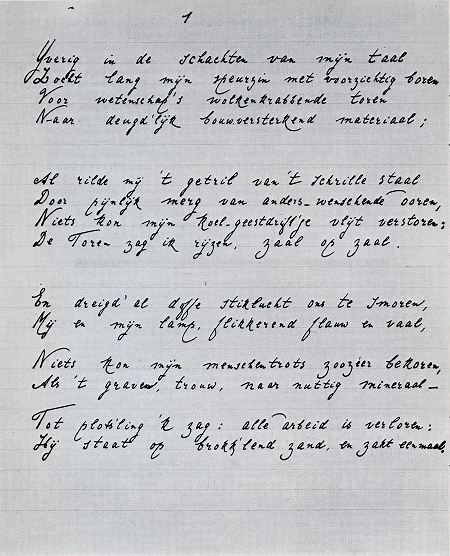 1
Yverig in de schachten van mijn taal
Zocht lang mijn speurzin met voorzichtig boren
Voor wetenschap's wolkenkrabbende toren
Naar deugd'lijk bouwversterkend materiaal;
Al rilde mij 't getril van 't schrille staal
Door pijnlijk merg van anders-wenschende ooren,
Niets kon mijn koel-geestdrift'ge vlijt verstoren:
De Toren zag ik rijzen, zaal op zaal.
En dreigd' al doffe stiklucht ons te smoren,
Mij en mijn lamp, flikkerend flauw en vaal,
Niets kon mijn menschentrots zoozéer bekoren,
Als 't graven, trouw, naar nuttig mineraal—
Tot plots'ling 'k zag: alle arbeid is verloren:
Hij staat op brokk'lend zand, en zakt eenmaal.